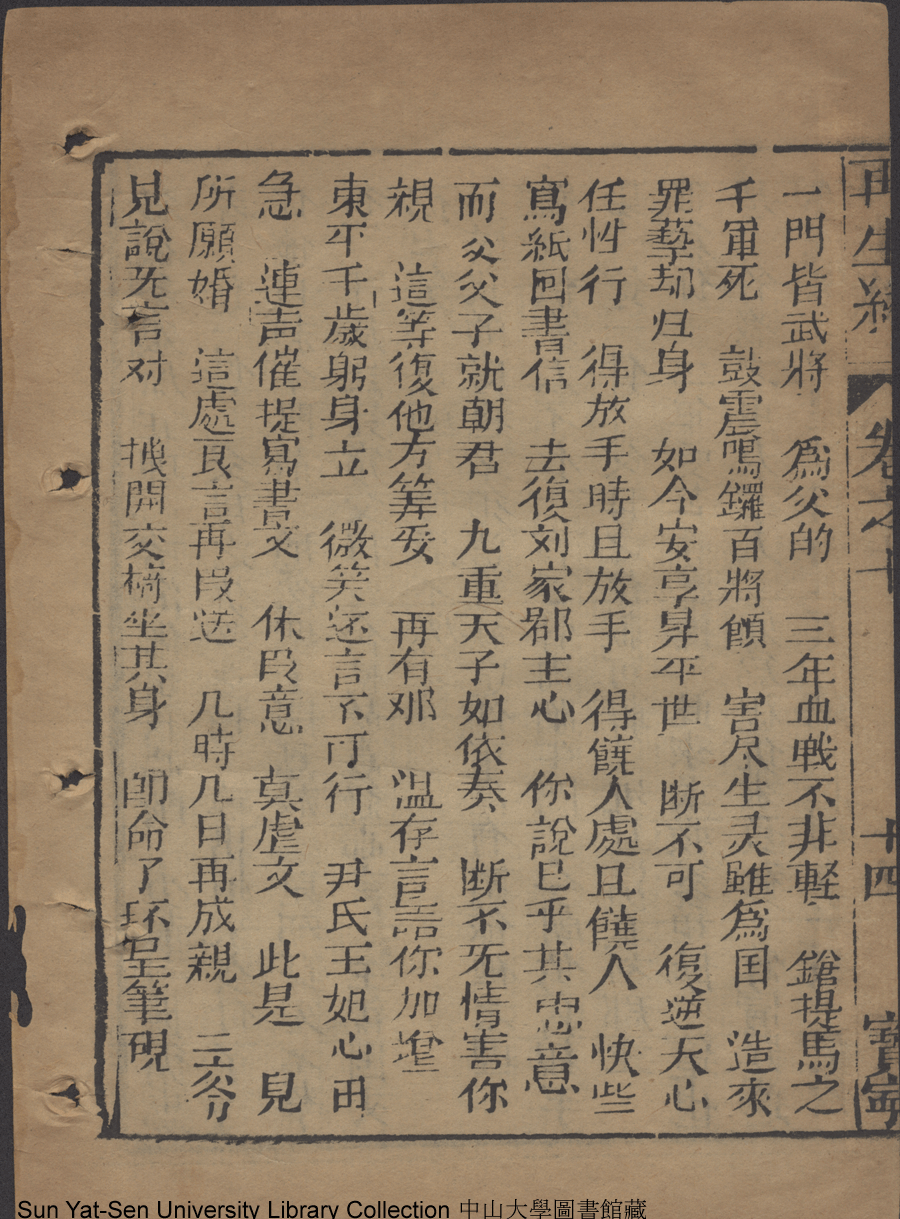 再生緣 卷之十 十四 寳寧
一門皆武將 爲父的 三年血戰不非輕 鎗挑馬之
千軍死 鼓震鳴鑼百將傾 害尽生灵雖爲国 造來
罪孽却归身 如今安享昇平世 断不可 復逆天心
任性行 得放手時且放手 得饒人處且饒人 快些
寫紙回書信 去復刘家郡主心 你說已乎其忠意
而父父子就朝君 九重天子如依奏 断不旡情害你
親 這等復他方筭妥 再有邓 温存言語你加增
東平千歲躬身立 微笑述言不可行 尹氏王妃心由
急 連声催捉寫書文 休叚意 莫虚文 此是 見
所願婚 這處良言再叚送 几時几日再成親 二爷
見說旡言对 拽開交椅坐其身 即命了环呈筆硯
Sun Yat-Sen University Library Collection 中山大學圖書館藏